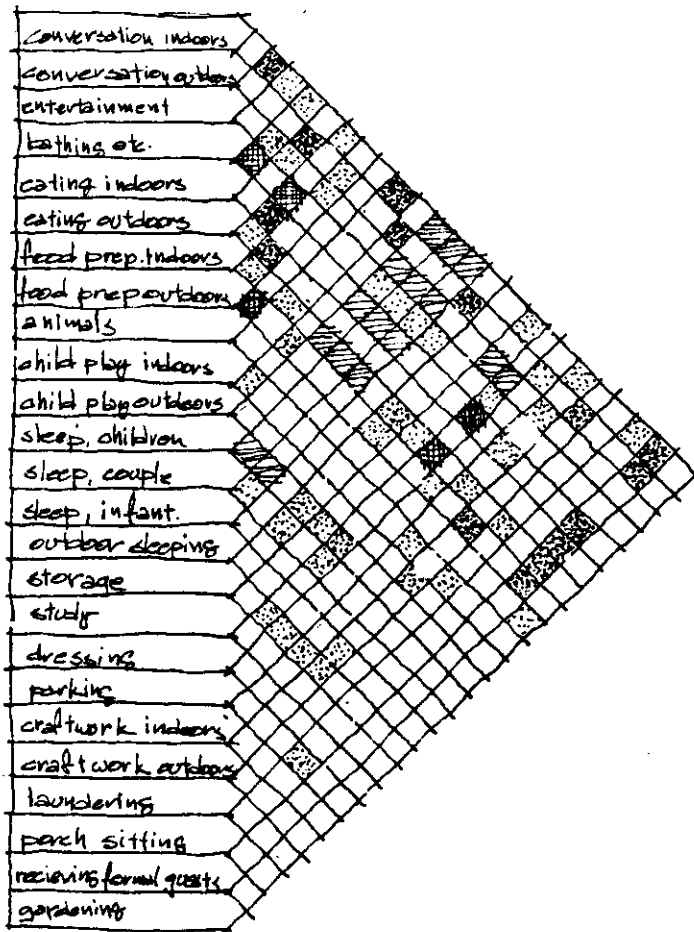 conversation indoors
conversation outdoors
entertainment
bathing etc.
eating indoors
eating outdoors
food prep. indoors
food prep outdoors
animals
child play indoors
child play outdoors
sleep, children
sleep, couple
sleep, infant.
outdoor sleeping
storage
study
dressing
parking
craftwork indoors
craftwork outdoors
laundering
porch sitting
recieving formal guests
gardening